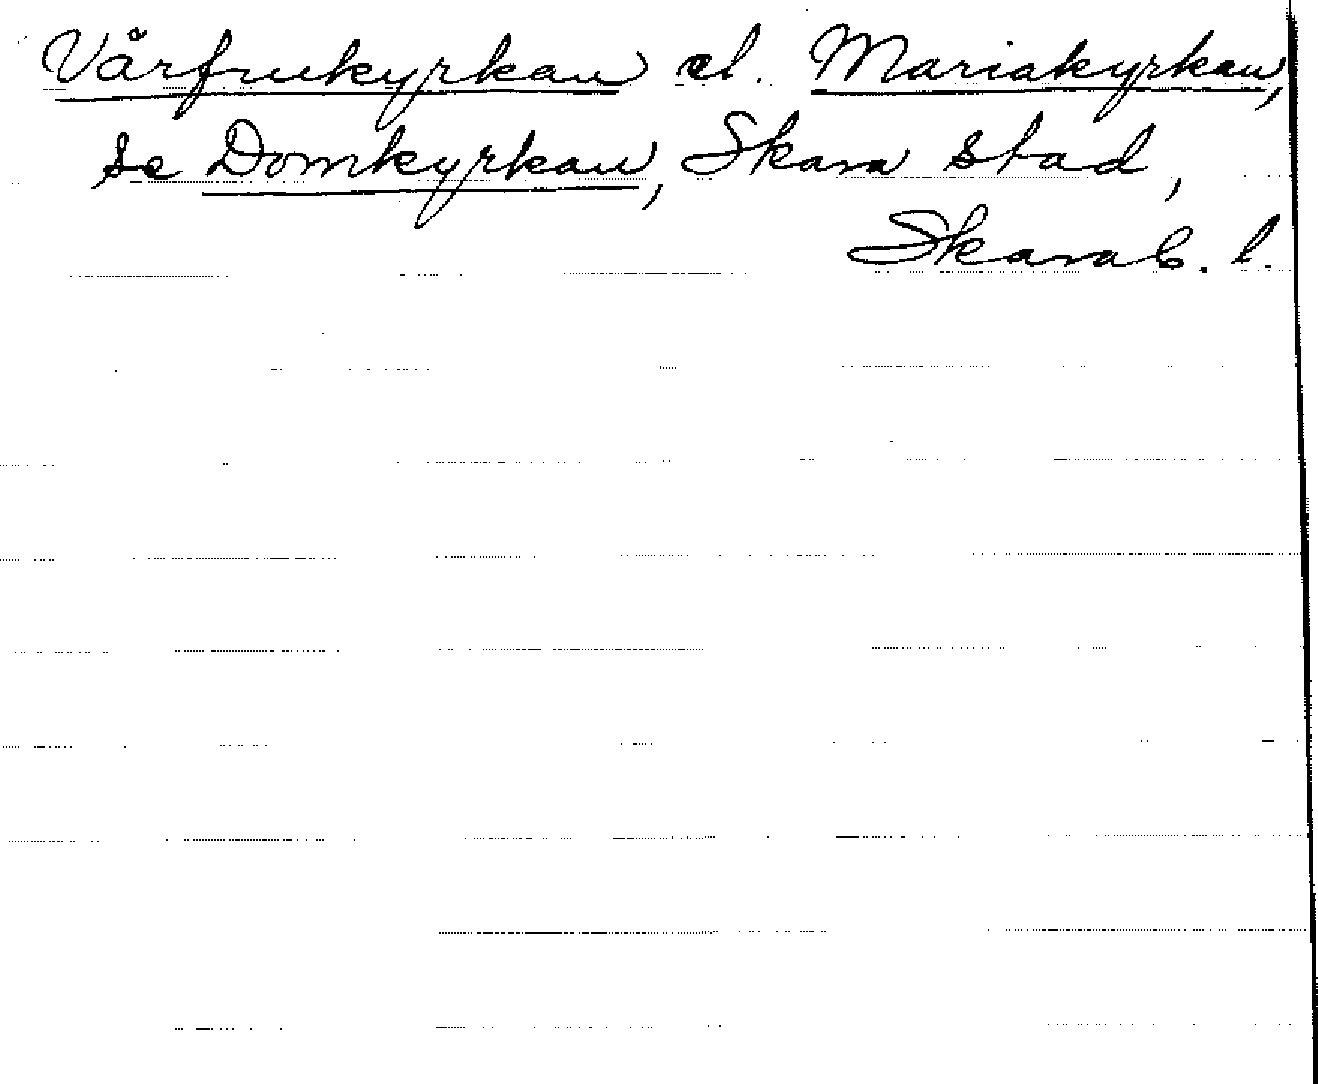 Vårfrukyrkan el. Mariakyrkan,
se Domkyrkan, Skara stad,
Skarab. l.